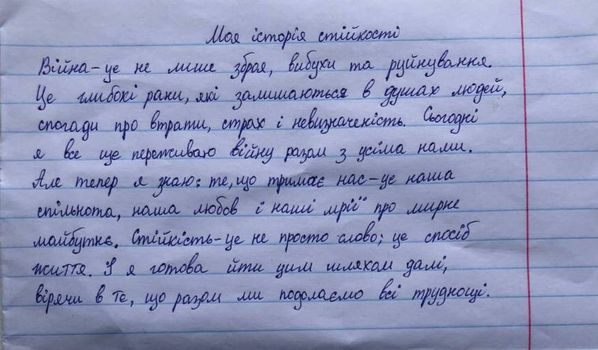 Моя історія стійкості
Війна-це не лише зброя, вибухи та руйнування.
Це глибокі рани, які залишаються в душах людей,
спогади про втрати, страх і невизначеність. Сьогодні
я все ще переживаю війну разом з усіма нами.
Але тепер я знаю: те, що тримає нас-це наша
спільнота, наша любов і наші мрії про мирне
майбутнє. Стійкість-це не просто слово; це спосіб
життя. І я готова йти цим шляхом далі,
вірячи в те, що разом ми подолаємо всі труднощі.